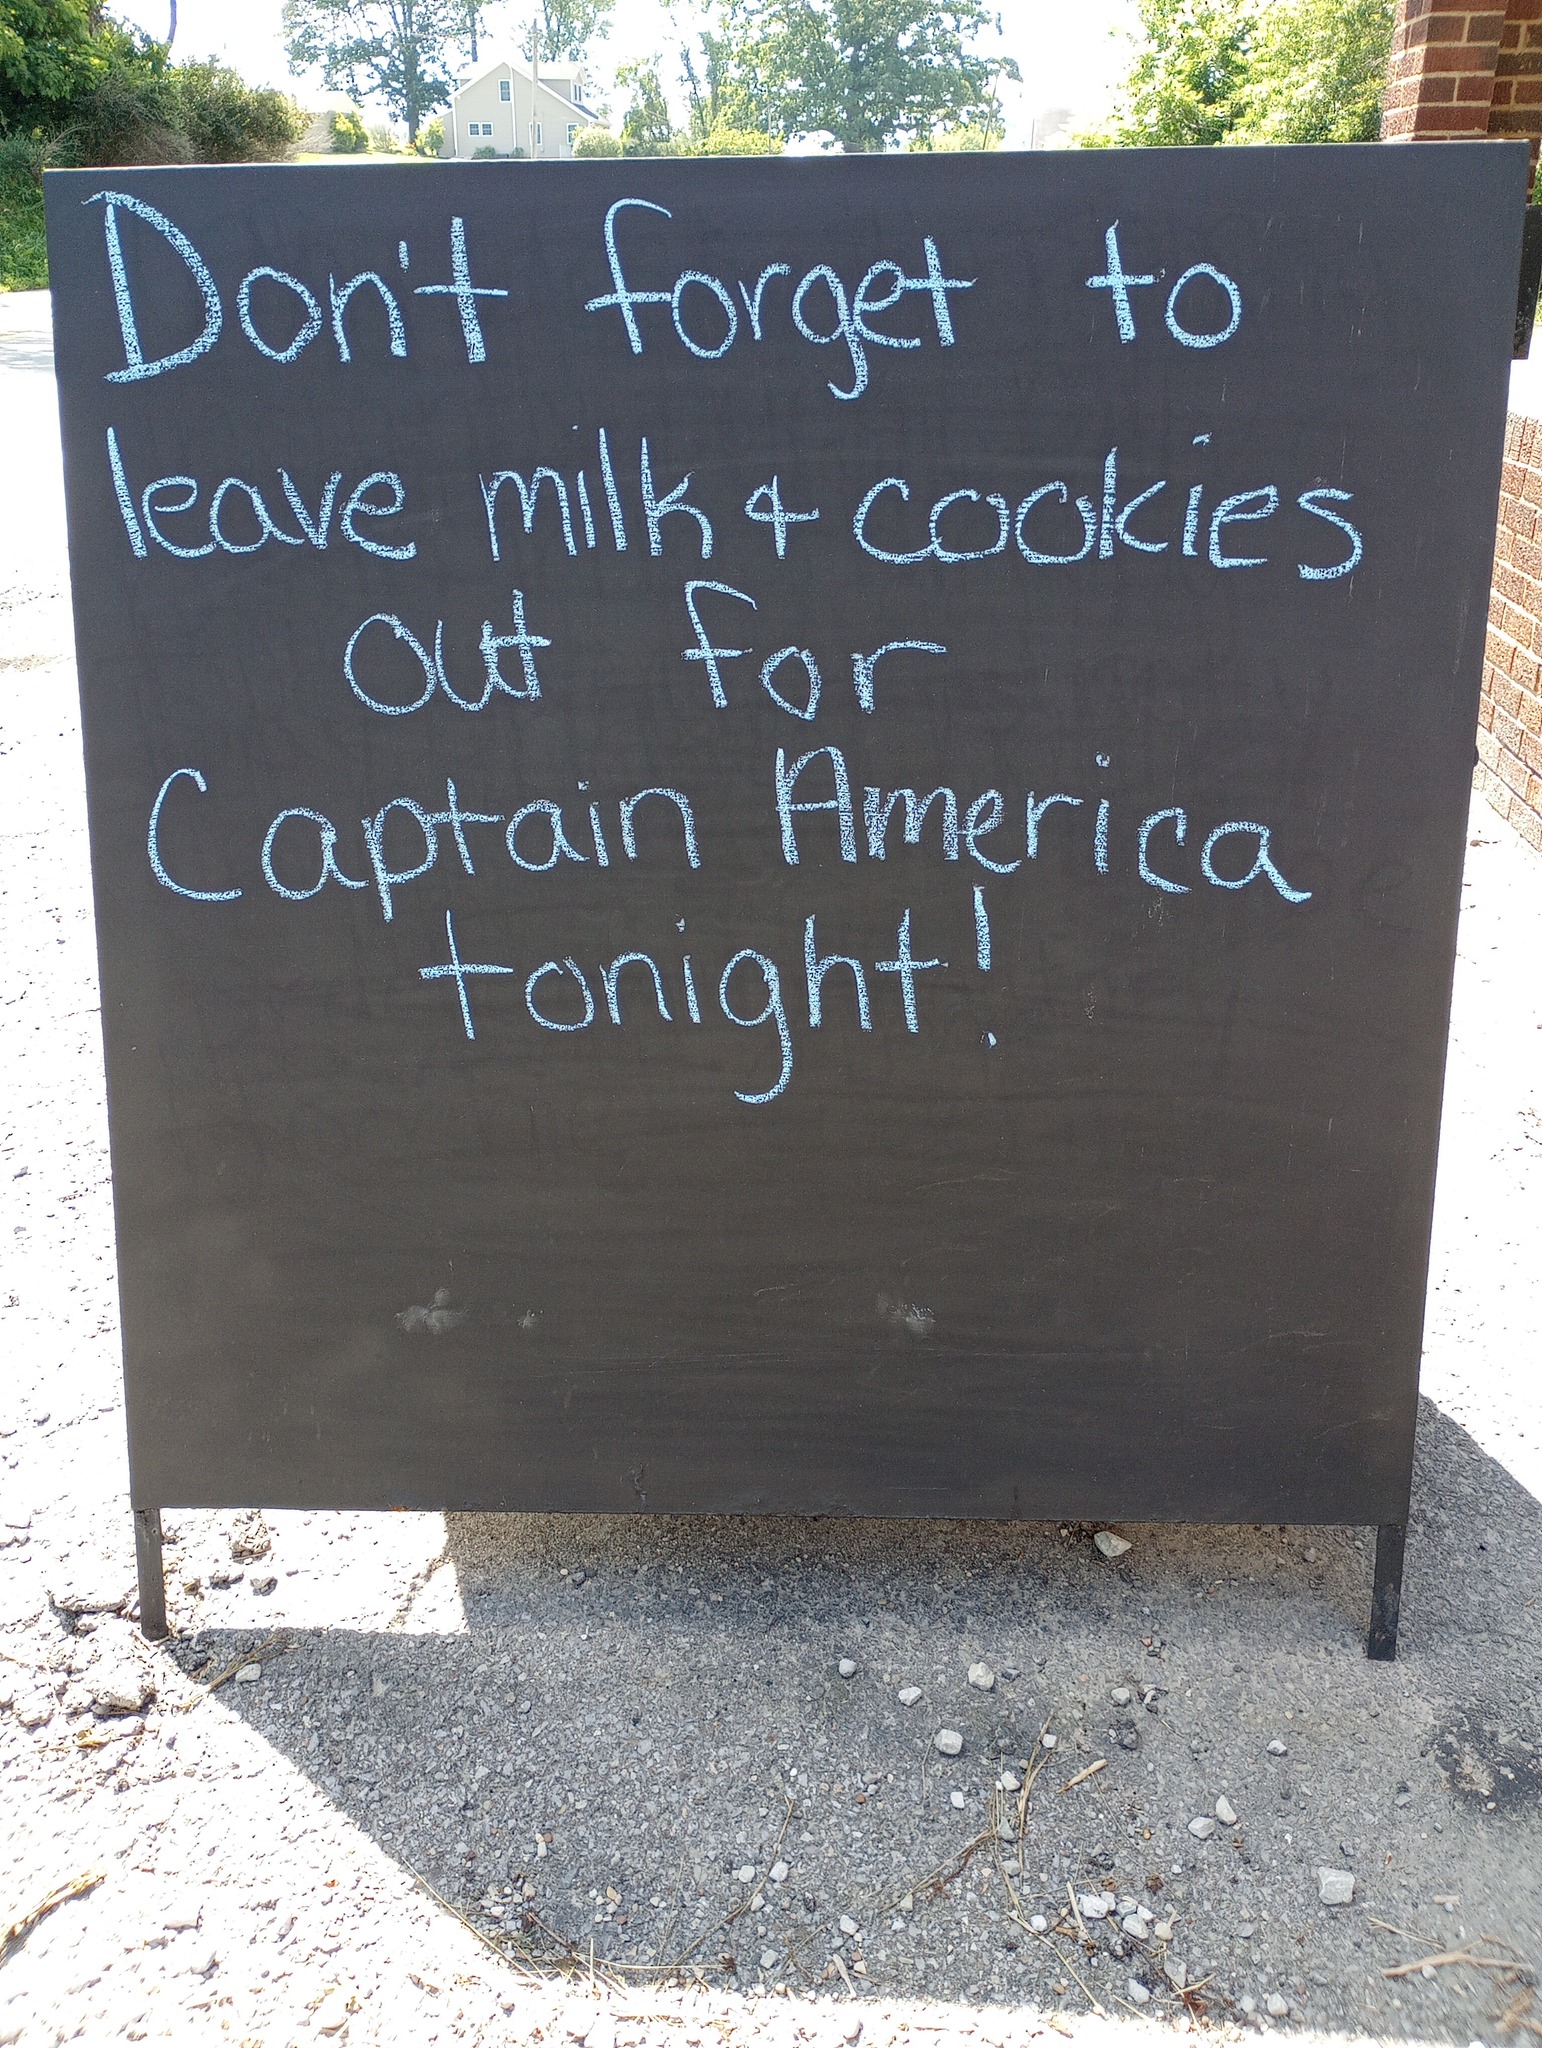 Don't forget to
leave milk & cookies
out for
Captain America
tonight!